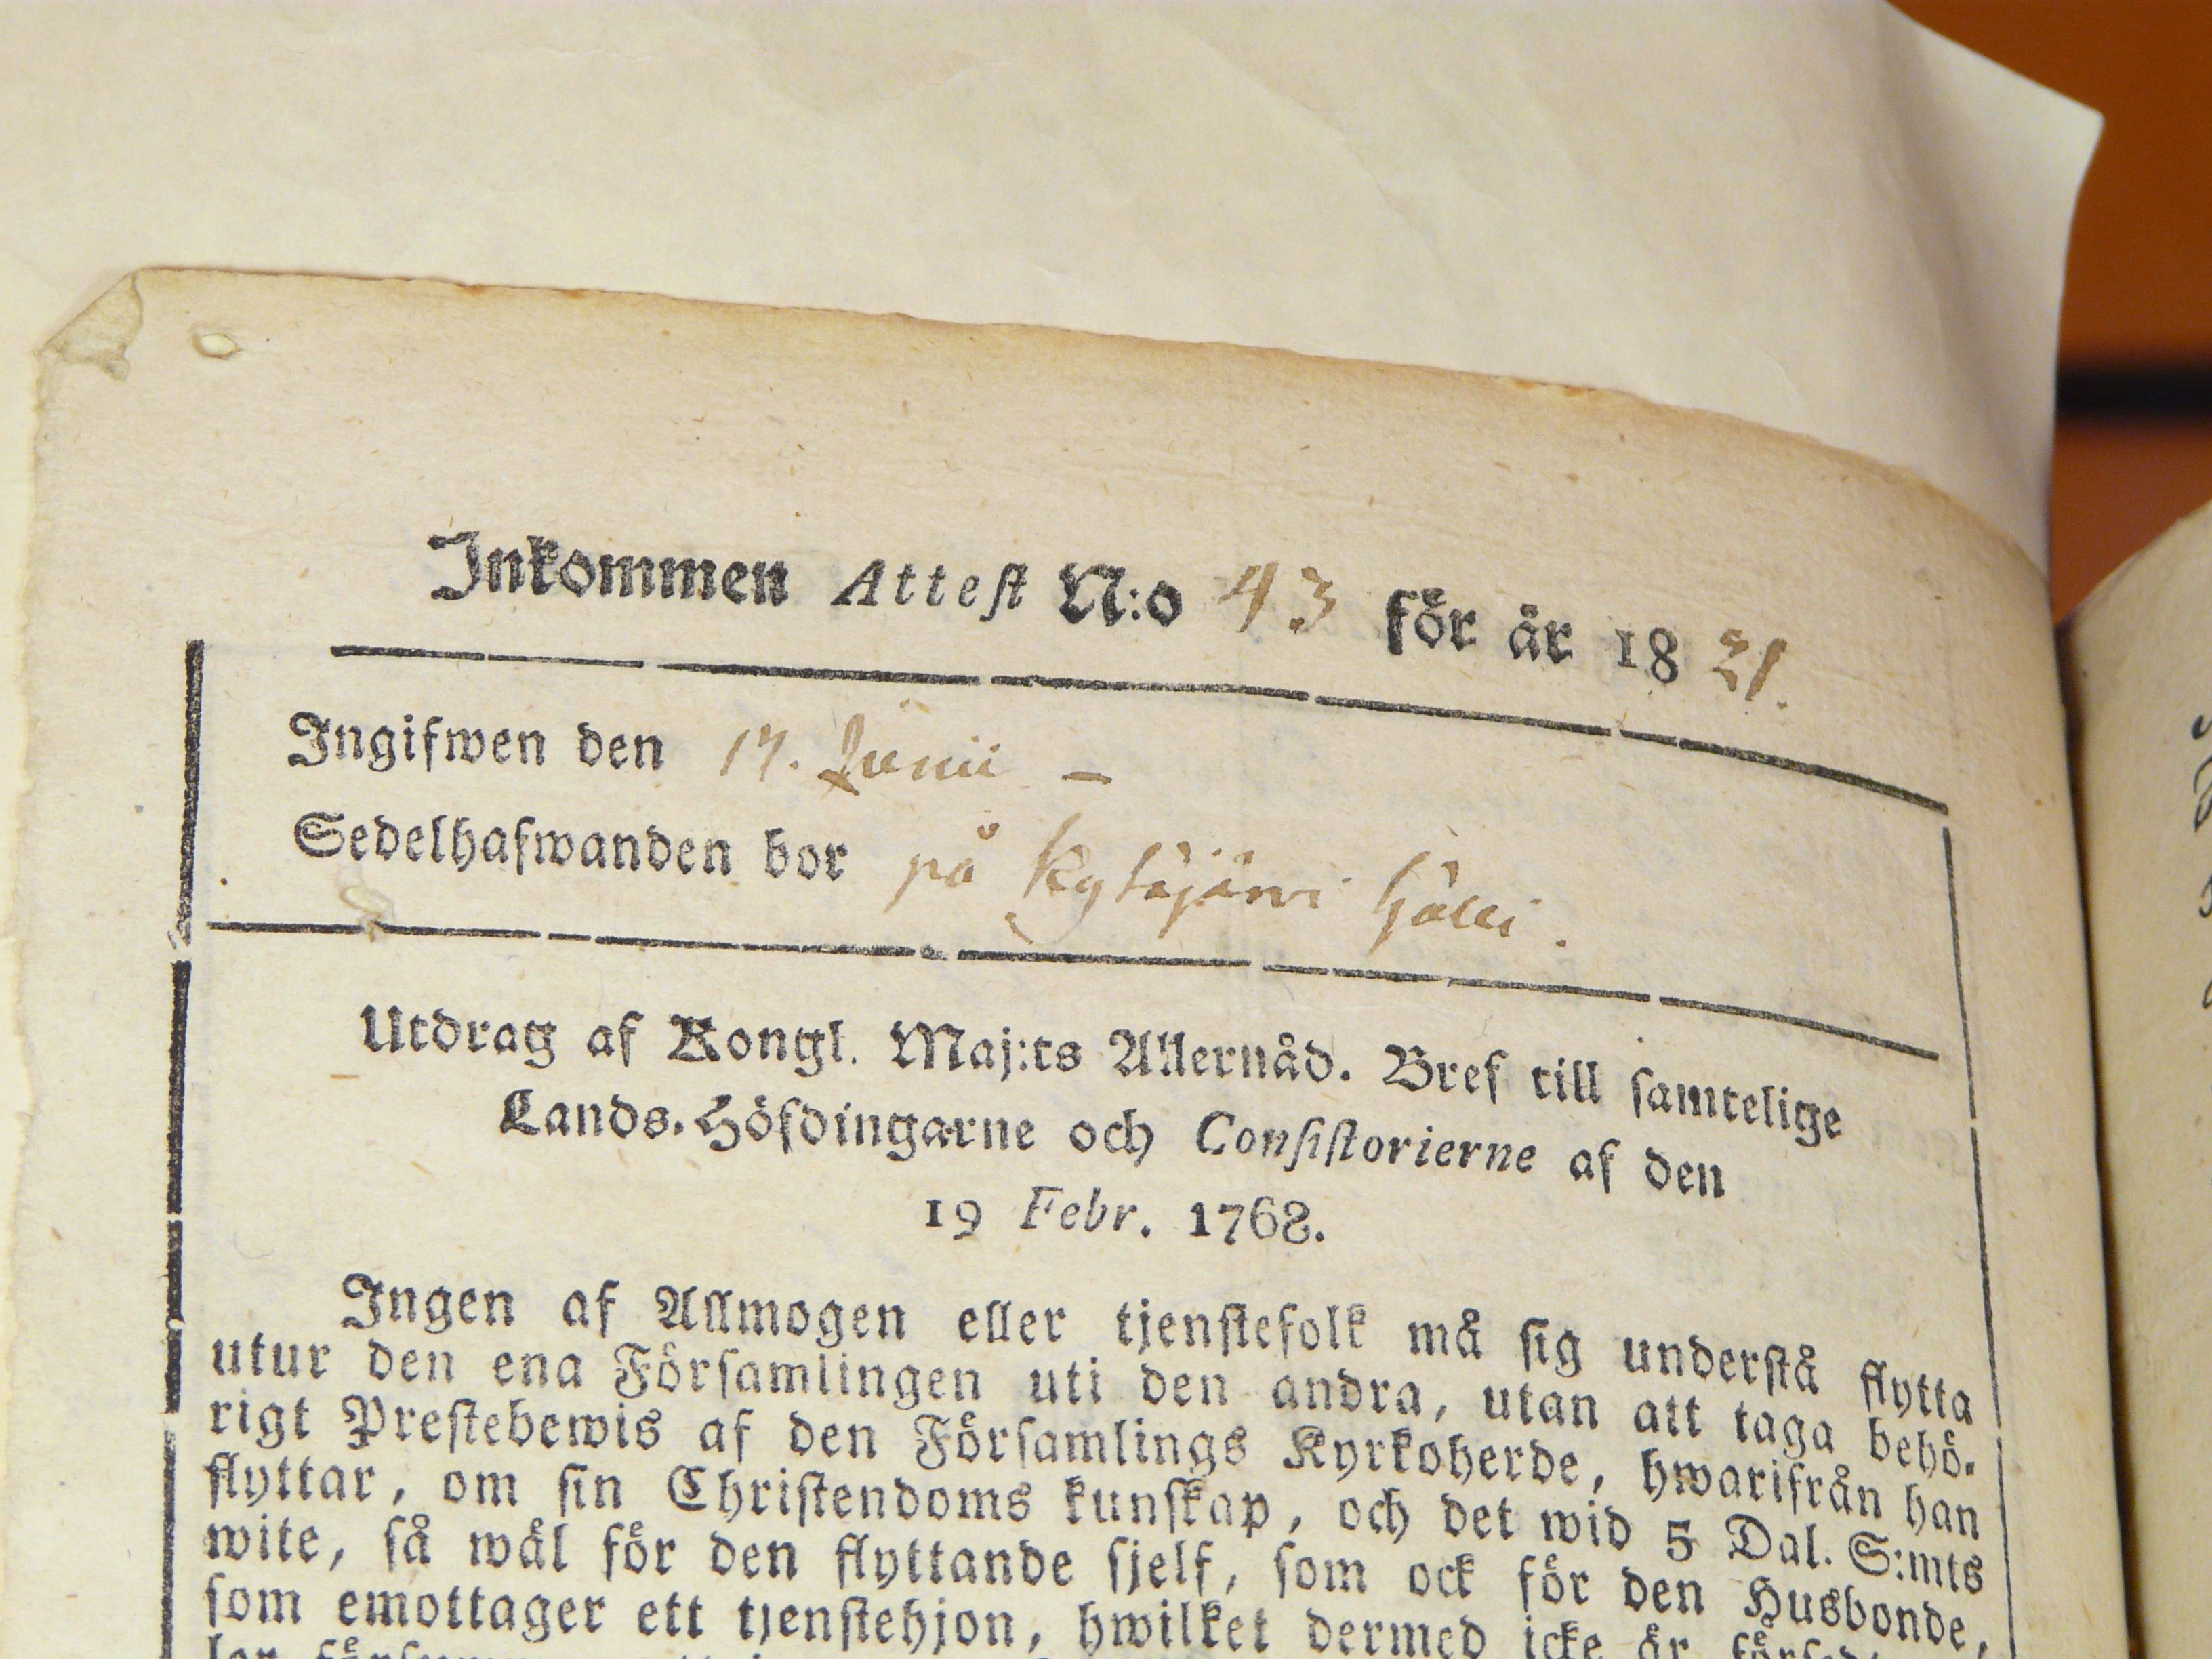 Inkommen Attest N:o 43 för år 1821.
Ingifwen den 17. Junii –
Sedelhafwanden bor på Kytäjärvi
Utdrag af Kongl. Maj:ts Allernåd. Bref till samtelige
Lands-Höfdingarne och Consistorierne af den
19 Febr. 1768.
Ingen af Allmogen eller tjenstefolk må sig understå flytta
utur den ena Församlingen uti den andra, utan att taga behö-
rigt Prestebewis af den Församlings Kyrkoherde, hwarifrån han
flyttar, om sin Christendoms kunskap, och det wid 5 Dal. S:mts
wite, så wäl för den flyttande sjelf, som ock för den Husbonde,
som emottager ett tjenstehjon, hwilket dermed icke är